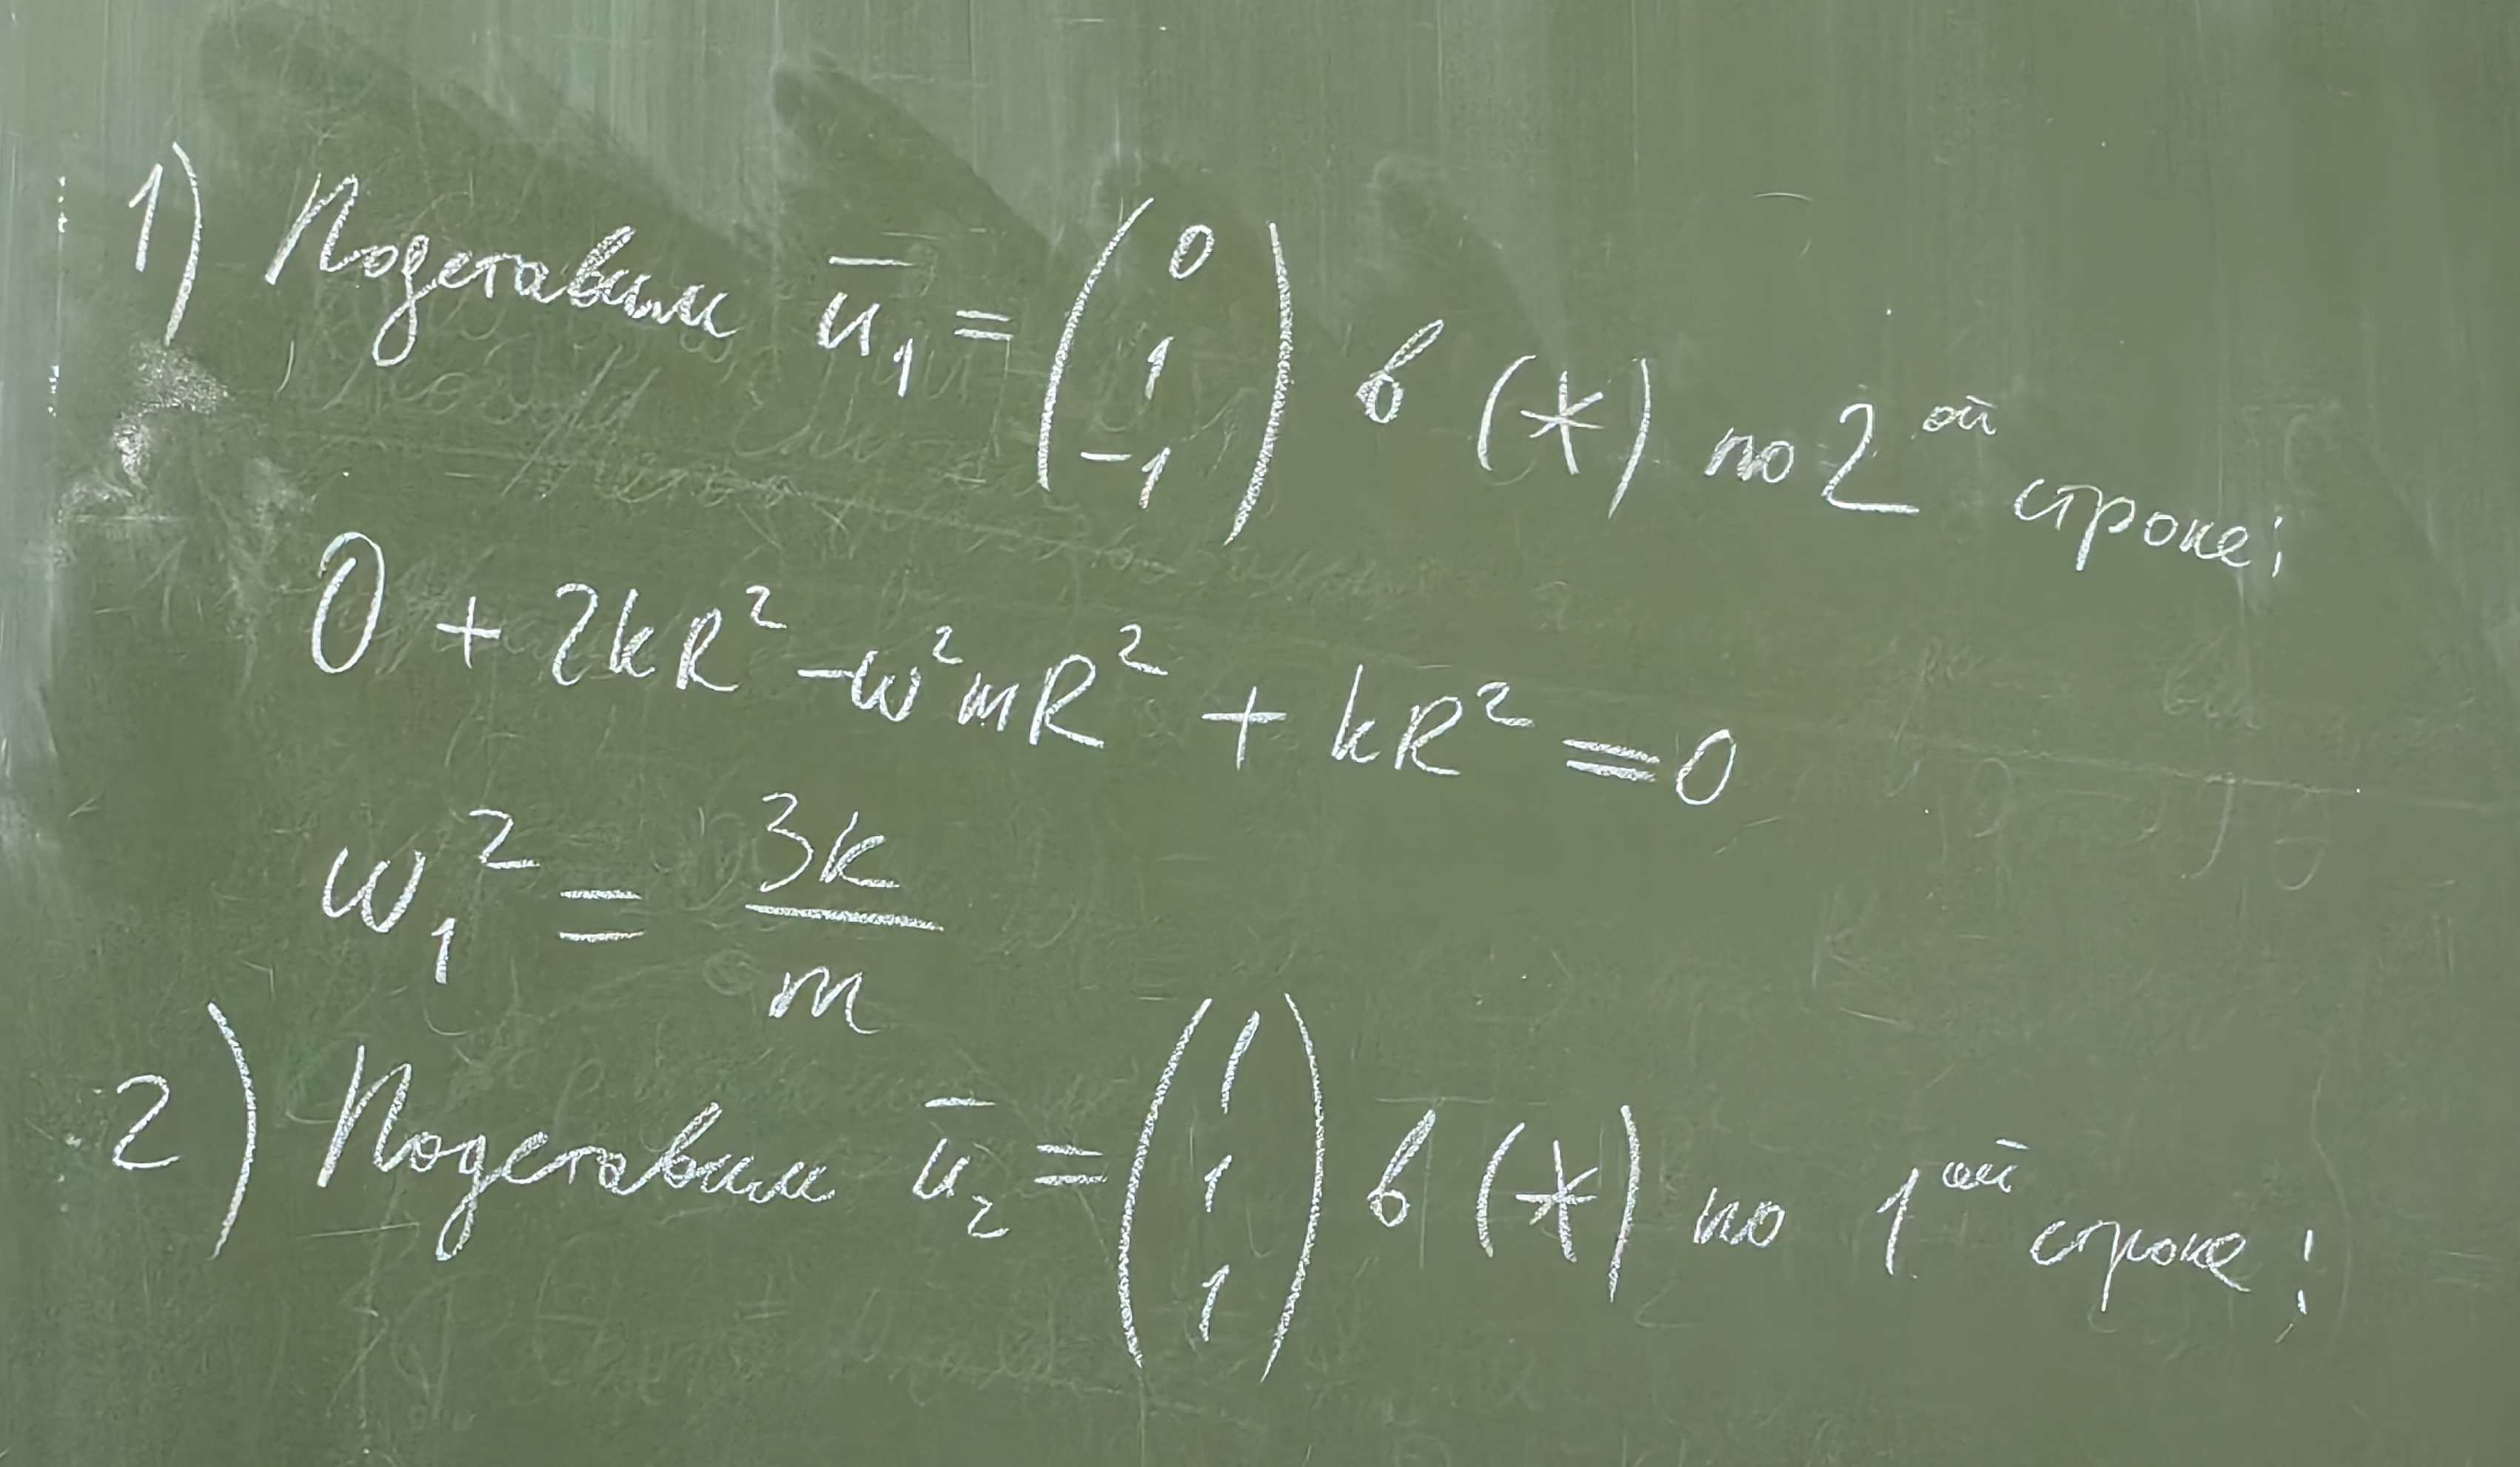 1) Подставим u̅₁ = (0 1 -1) в (*) по 2ой строке;
0 + 2kR² - ω²mR² + kR² = 0
ω₁² = 3k/m
2) Подставим u̅₂ = (1 1 1) в (*) по 1ой строке;